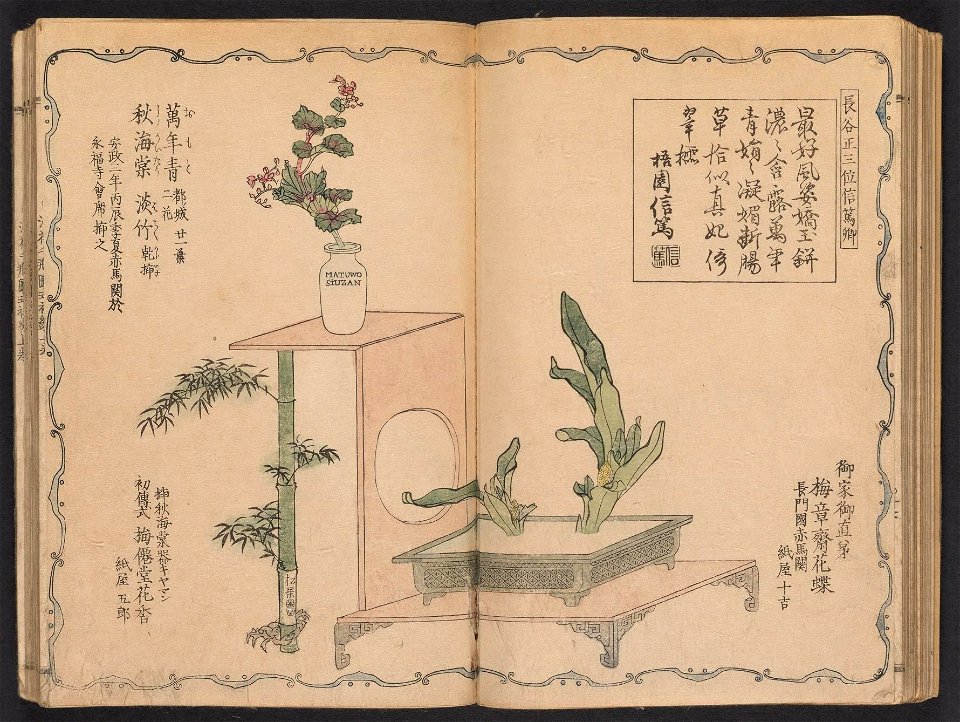 長谷正三位信篤卿
最好風姿嬌玉缾
濃〻含露萬年
青娟〻凝媚斷腸
草恰似真妃倚
翠欄
梧園信篤
信篤
御家御直弟
梅章齋花蝶
長門國赤馬関
紙屋十吉
MATUWO
SIUZAN
おもと
萬年青 都城 廿一葉
二花
秋海棠 淡竹 乾挿
安政二年丙辰季夏赤馬関於
永福寺會席挿之
挿秋海棠器キヤマン
初傳式 梅僊堂花杏
紙屋五郎